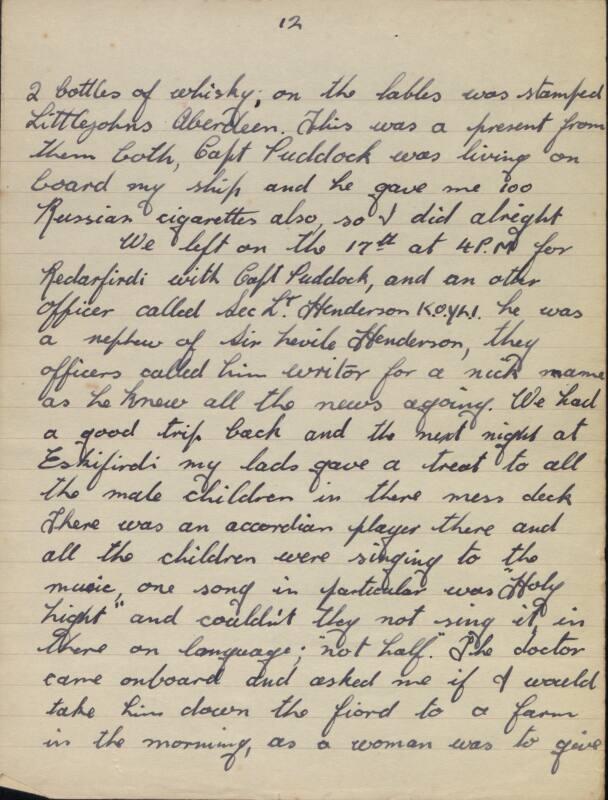 12
2 bottles of whisky; on the lables was stamped
Littlejohns Aberdeen. This was a present from
them both, Capt Puddock was living on
board my ship and he gave me 100
Russian cigarettes also, so I did alright
We left on the 17th at 4 P.M for
Redarfirdi with Capt Puddock, and an other
officer called Sec Lt Henderson K.O.Y.L.I. he was
a nephew of Sir Nevile Henderson, they
officers called him writor for a nick name
as he knew all the news agoing. We had
a good trip back and the next night at
Eskifirdi my lads gave a treat to all
the male children in there mess deck
There was an accordian player there and
all the children were singing to the
music, one song in particular was "Holy
Night" and couldn't they not sing it in
there on language; "not half." The doctor
came onboard and asked me if I would
take him down the fiord to a farm
in the morning, as a woman was to give